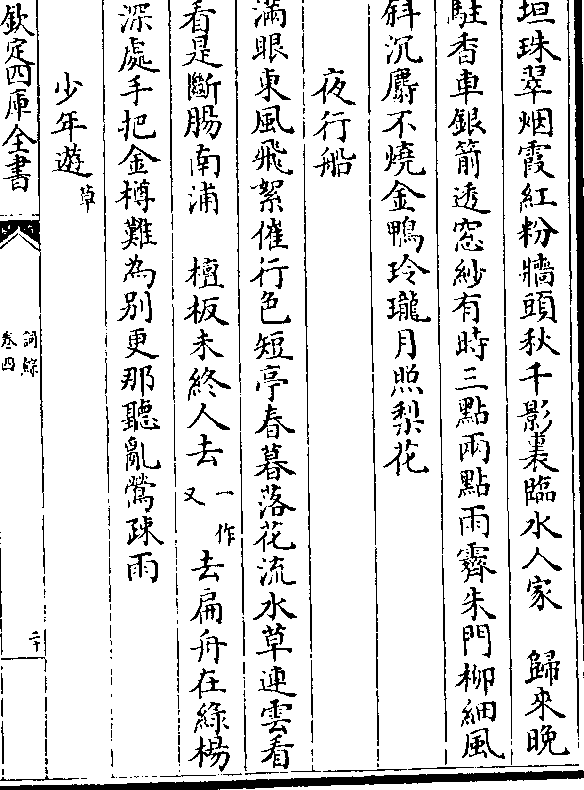 垣珠翠烟霞紅粉牆頭秋千影裏臨水人家　歸來晚
駐香車銀箭透窓紗有時三點兩點雨霽朱門柳細風
斜沉麝不燒金鴨玲瓏月照梨花
夜行船
滿眼東風飛絮催行色短亭春暮落花流水草連雲看
看是斷腸南浦　檀板未終人去一作又去扁舟在綠楊
深處手把金樽難為別更那聽亂鶯疎雨
少年遊草
欽定四庫全書　詞綜卷四　二十